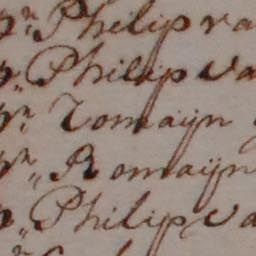 pr Philip va
pr Philip va
pr Romaijn
pr Romaijn
pr Philip va